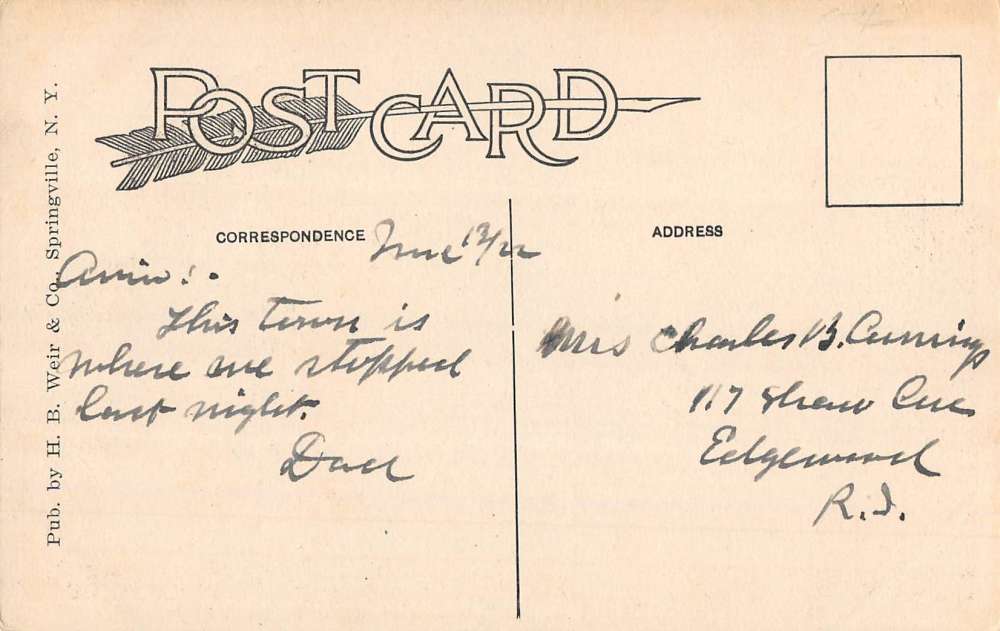 POST CARD
Pub. by H. B. Weir & Co., Springville, N. Y.
CORRESPONDENCE
June 13/22
This town is
where we stopped
last night.
Dad
ADDRESS
Mrs Charles B. Cumings
117 Shaw Ave
Edgewood
R.I.